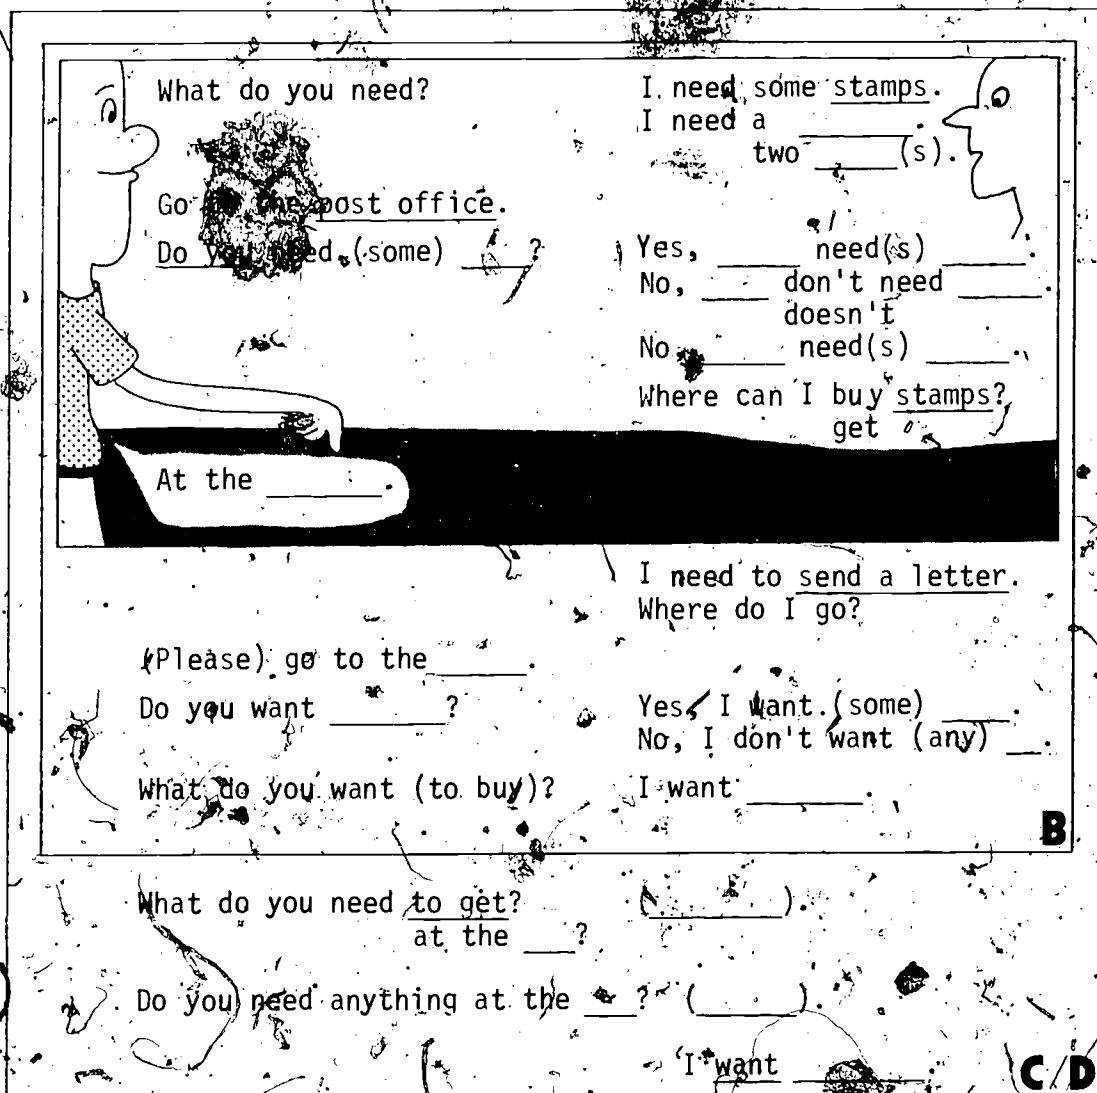 What do you need?
I need some stamps.
I need a ______.
two _____(s).
Go the post office.
Do you need (some) ____?
Yes, _____ need(s) _____.
No, ____ don't need _____.
doesn't
No _____ need(s) _____.
Where can I buy stamps?
get
At the _______.
I need to send a letter.
Where do I go?
(Please) go to the ______.
Do you want _______?
Yes, I want (some) ____.
No, I don't want (any) __.
What do you want (to buy)?
I want _______.
B
What do you need to get?
(________).
at the ___?
Do you need anything at the ___?
(______).
I want ________.
C/D